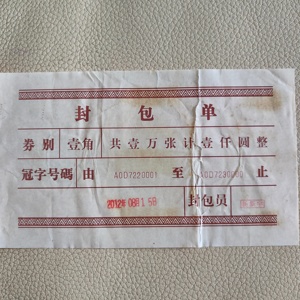 封包单
券别 壹角 共壹万张计壹仟圆整
冠字号碼 由 A0D7220001 至 A0D7230000 止
2012年08月15日 封包员